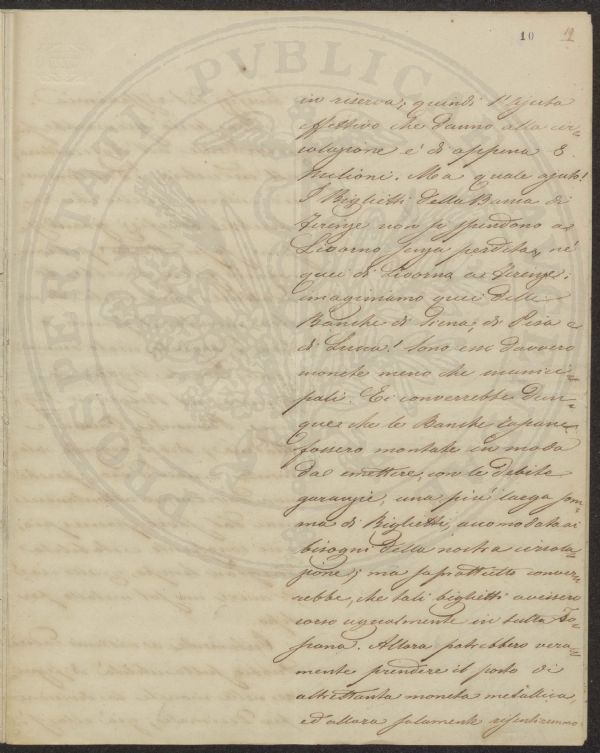 10 19
PROSPERITATI PUBLICAE
in riserva; quindi l'ajuto
effettivo che danno alla cir=
colazione è di appena 8
Milioni. Ma quale ajuto!
I Biglietti della Banca di
Firenze non si spendono a
Livorno senza perdita, nè
quei di Livorno a Firenze;
immaginiamo quei delle
Banche di Siena, di Pisa e
di Lucca! Sono essi davvero
monete meno che munici=
pali. Ei converrebbe dun=
que che le Banche
fossero montate in modo
da emettere, con le debite
garanzie, una più larga som=
ma di Biglietti, accomodata ai
bisogni della nostra circola=
zione; ma soprattutto conver=
rebbe, che tali biglietti avessero
corso ugualmente in tutta To=
scana. Allora potrebbero vera=
mente prendere il posto di
altrettanta moneta metallica,
ed allora solamente risentiremmo